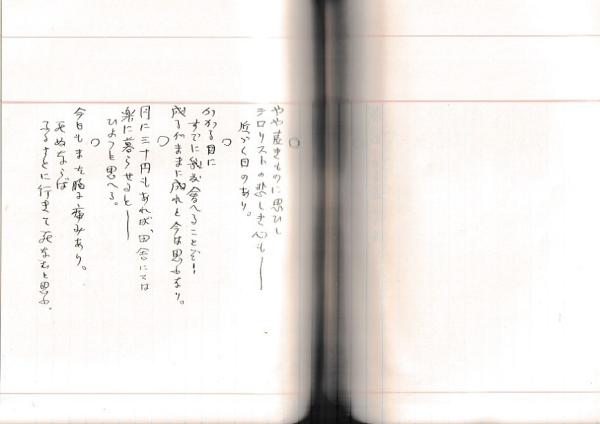 やや遠きものに思ひし
テロリストの悲しき心も――
近づく日のあり。
○
かかる目に
すでに幾度会へることぞ!
成るがままに成れと今は思ふなり。
○
月に三十円もあれば、田舎にては
楽に暮らせると――
ひょっと思へる。
○
今日もまた胸に痛みあり。
死ぬならば
ふるさとに行きて死なむと思ふ。